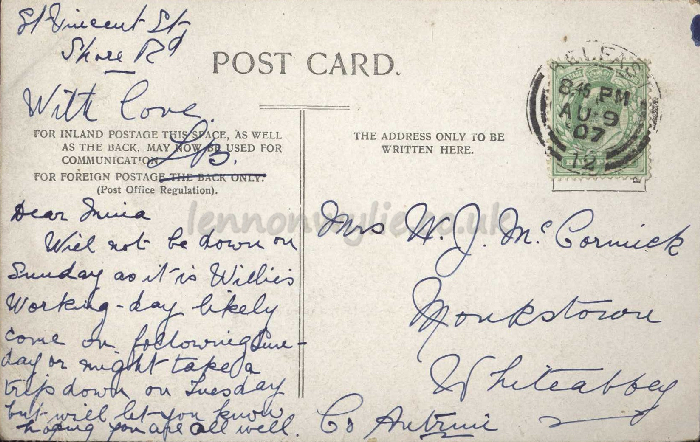 St Vincent St
Shore Rd
POST CARD.
With love.
LB.
FOR INLAND POSTAGE THIS SPACE, AS WELL
AS THE BACK, MAY NOW BE USED FOR
COMMUNICATION
FOR FOREIGN POSTAGE THE BACK ONLY.
(Post Office Regulation).
Dear Mina
Will not be down on
Sunday as it is Willies
Working-day likely
come on following Sun-
day or might take a
trip down on Tuesday
but will let you know
hoping you are all well.
THE ADDRESS ONLY TO BE
WRITTEN HERE.
BELFAST
8 45 PM
AU 9
07
12
Mrs W. J. McCormick
Monkstown
Whiteabbey
Co Antrim
lennonwylie.co.uk